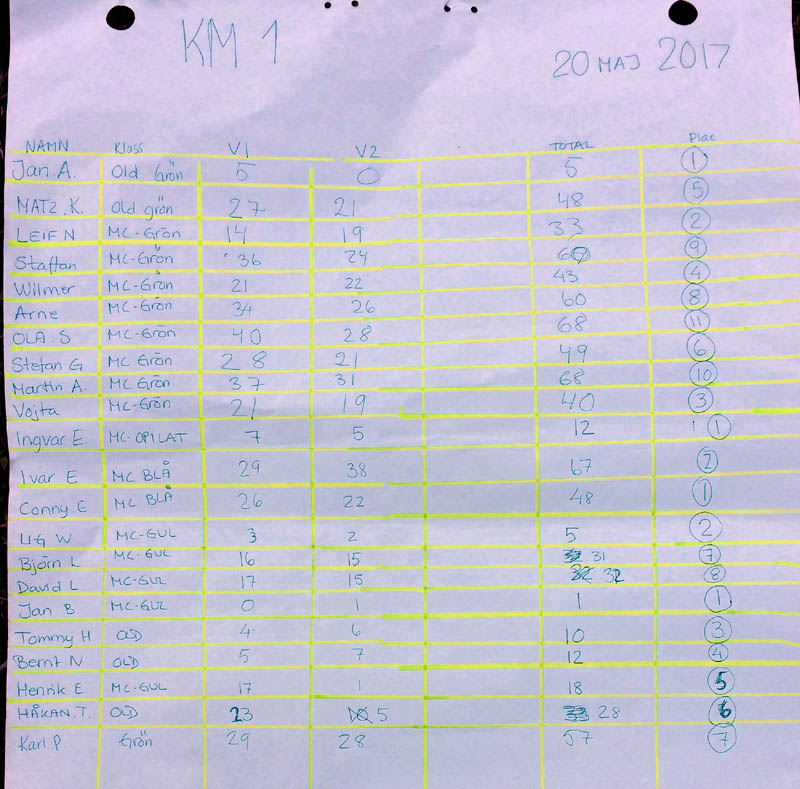 KM 1
20 MAJ 2017
NAMN Klass V1 V2 TOTAL Plac
Jan. A. Old Grön 5 0 5 1
MATZ. K. Old grön 27 21 48 5
LEIF N MC-Grön 14 19 33 2
Staffan MC-Grön 36 24 60 9
Wilmer MC-Grön 21 22 43 4
Arne MC-Grön 34 26 60 8
OLA. S MC-Grön 40 28 68 11
Stefan G MC Grön 28 21 49 6
Martin A. MC Grön 37 31 68 10
Vojta MC-Grön 21 19 40 3
Ingvar E. MC-OPILAT 7 5 12 1
Ivar E MC BLÅ 29 38 67 2
Conny E MC BLÅ 26 22 48 1
U-G W MC-GUL 3 2 5 2
Björn L MC-GUL 16 15 31 7
David L MC-GUL 17 15 32 32 8
Jan B MC-GUL 0 1 1 1
Tommy H OLD 4 6 10 3
Bernt N OLD 5 7 12 4
Henrik E MC-GUL 17 1 18 5
HÅKAN. T. OLD 23 5 33 28 6
Karl P Grön 29 28 57 7